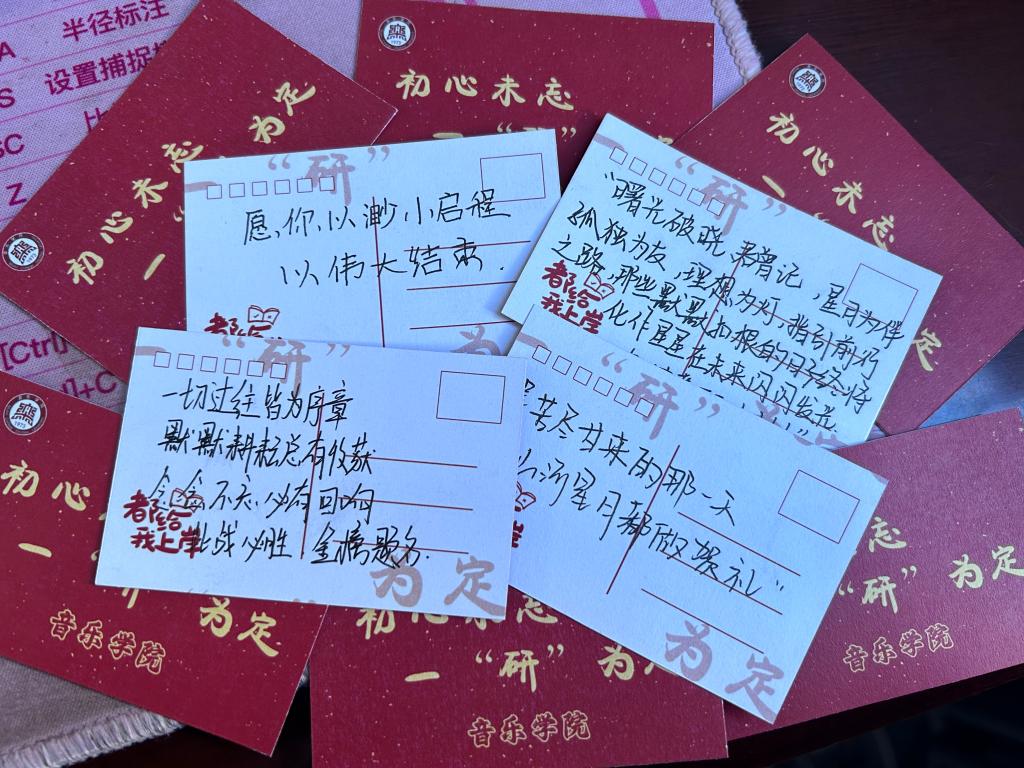 半径标注
设置捕捉
初心未忘
一
为定
初心未忘
初心未忘
一
定
“研”
愿你以渺小启程
以伟大结束.
都给
“研”
“曙光破晓,
记,星月为伴
孤独为友,理想为灯,指引前行
之路,那些默默扎根的日子终将
化作星星在未来闪闪发光
都给
我上岸
一“研”
一切过往皆为序章
默默耕耘总有收获
念念不忘必有回响
此战必胜 金榜题名.
都给
我上岸
为定
“研”为定
苦尽甘来的那一天
山河星月都做贺礼”
为定
初心
一
为定
音乐学院
初心未忘
一“研”为
音乐学院
忘
“研”为定
音乐学院
[Ctrl]